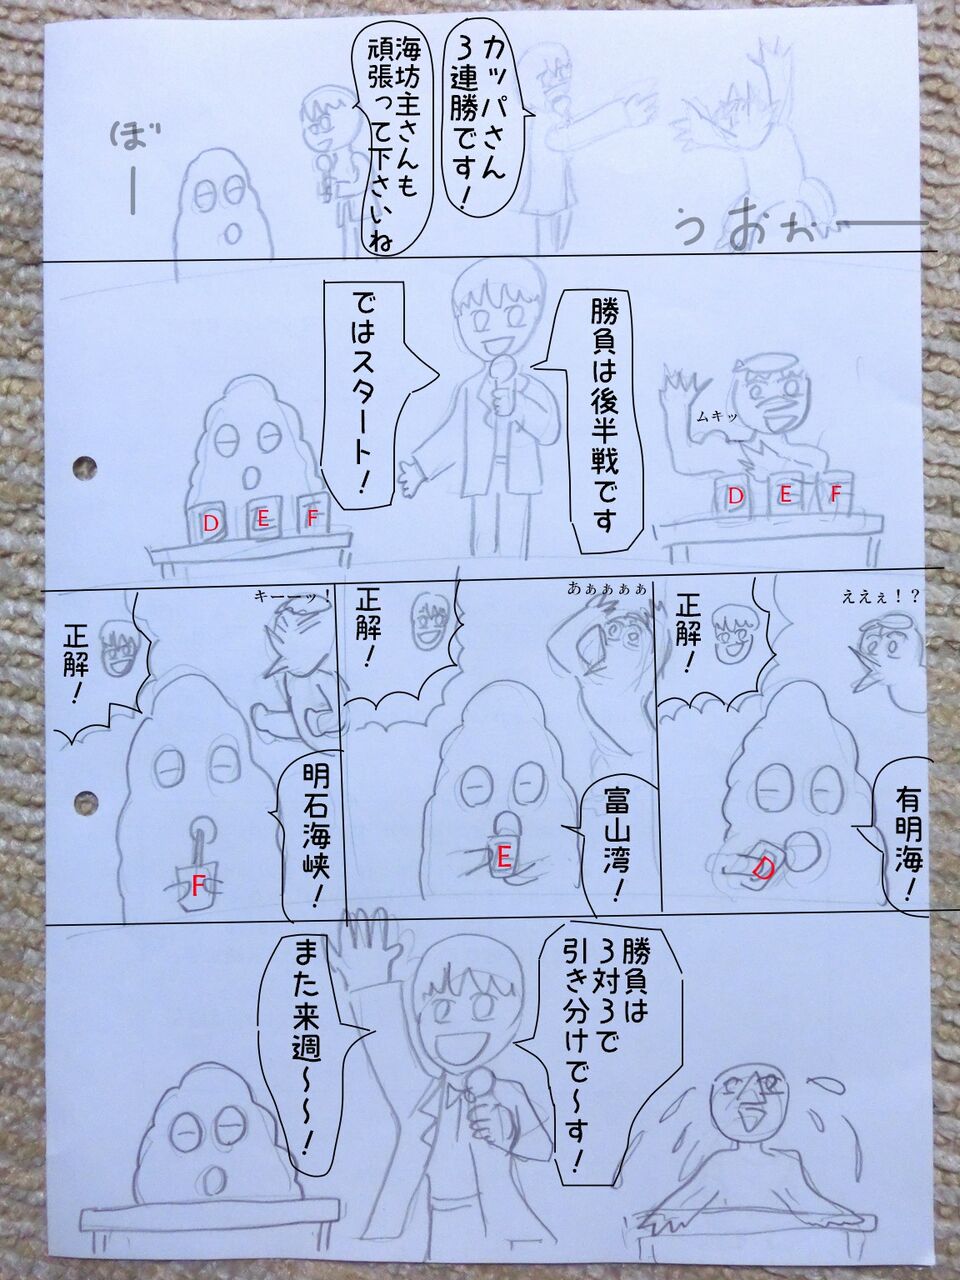 カッパさん
3連勝です!
海坊主さんも
頑張って下さいね
ぼー
うおぉー
勝負は後半戦です
ではスタート!
ムキッ
D
E
F
D
E
F
ええぇ!?
正解!
有明海!
D
あぁぁぁぁ
正解!
富山湾!
E
キーーッ!
正解!
明石海峡!
F
勝負は
3対3で
引き分けで〜す!
また来週〜〜!